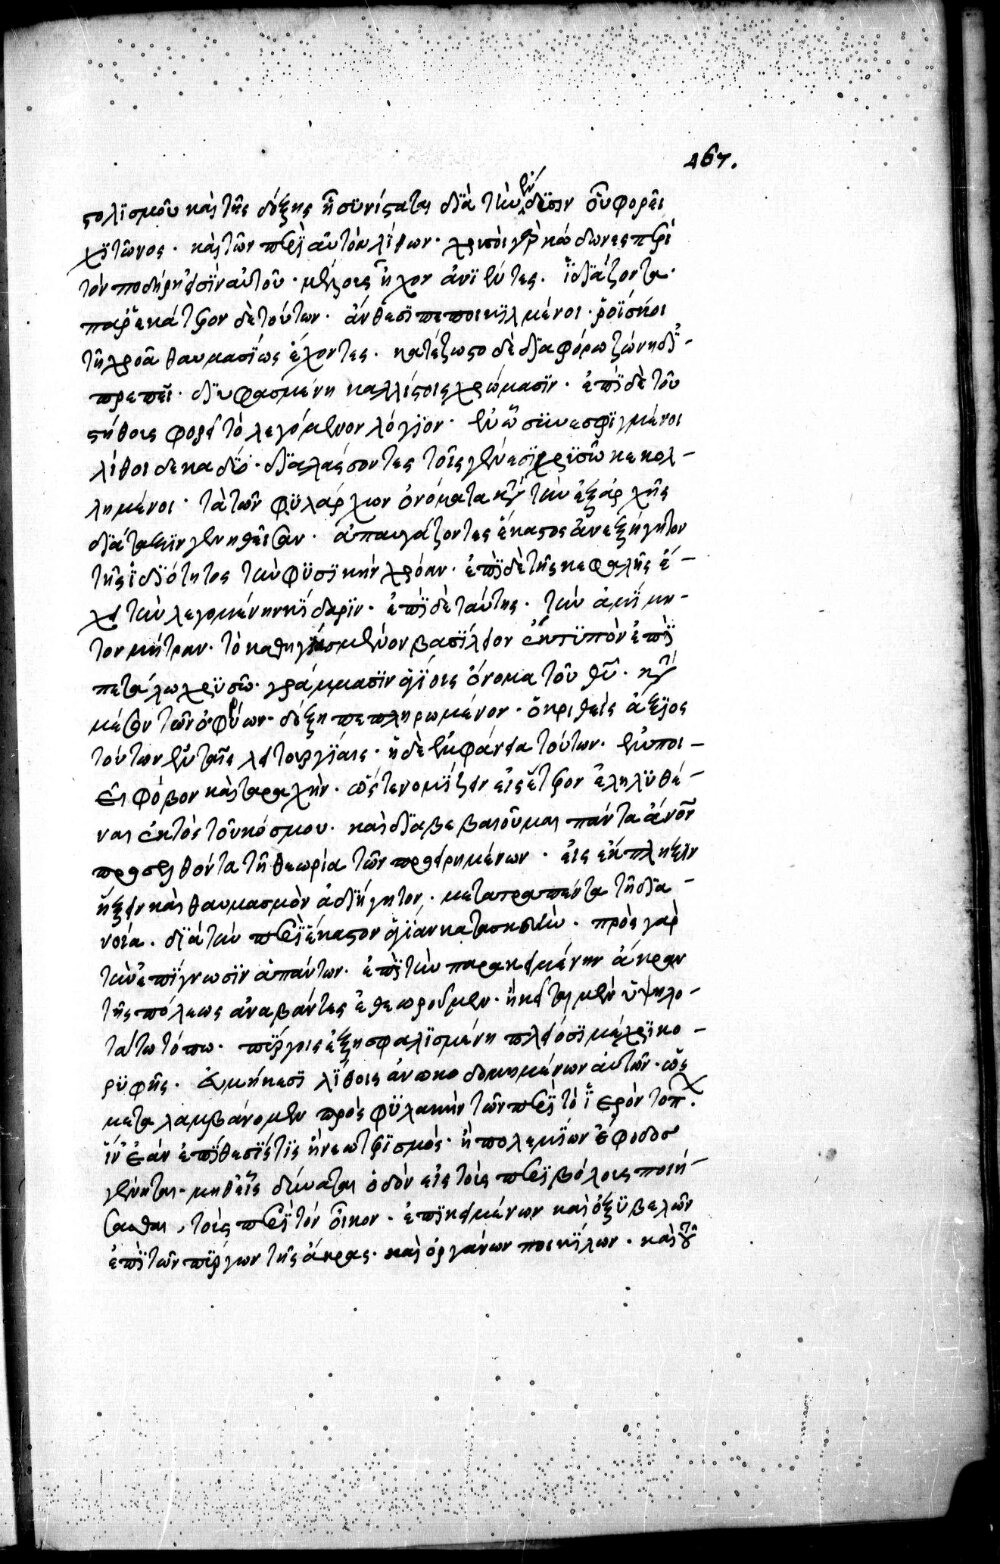 467.
στολϊσμοῦ καὶ τῆς δόξης ἣ σϋνίσταται δϊὰ τὴν ἔνδϋσιν οὗ φορεῖ
χϊτῶνος· καὶ τῶν περὶ αὐτὸν λίθων· χρυσοῖ γὰρ κώδωνες περὶ
τὸν ποδήρη εἰσὶν αὐτοῦ· μέλους ἦχον ἀνϊέντες. ἰδϊάζοντα·
παρ' ἑκάτερον δὲ τούτων· ἄνθεσϊ πεποικιλμένοι· ῥοΐσκοι
τῇ χρόα θαυμασίως ἔχοντες. κατέζωστο δὲ δϊαφόρω ζώνη δϊ-
πρεπεῖ· δϊυφασμένη καλλίστοις χρώμασϊν· ἐπὶ δὲ τοῦ
στήθους φορεῖ τὸ λεγόμενον λόγϊον· ἐν ᾧ συνεσφϊγμένοι
λίθοι δεκαδύο· δϊαλάσσοντες τοῖς γένεσϊ χρϋσῶ κεκολ-
λημένοι· τὰ τῶν φϋλάρχων ὀνόματα κατὰ τὴν ἐξ ἀρχῆς
δϊάταξϊν γενηθεῖσαν· ἀπαυγάζοντες ἕκαστος ἀνεξήγητον
τῆς ἰδϊότητος τὴν φϋσϊκὴν χρόαν· ἐπὶ δὲ τῆς κεφαλῆς ἔ-
χει τὴν λεγομένην κίδαρϊν· ἐπὶ δὲ ταύτης· τὴν ἀμίμη-
τον μήτραν· τὸ καθηγϊασμένον βασίλειον ἐκτϋποῦν ἐπὶ
πετάλω χρϋσῶ· γράμμασϊν ἁγίοις ὄνομα τοῦ θῦ· κατὰ
μέσον τῶν ὀφρύων· δόξη πεπληρωμένον· ὁ κριθεὶς ἄξϊος
τούτων ἐν ταῖς λειτουργίαις· ἡ δὲ ἐμφάνεια τούτων· ἐμποι-
εῖ φόβον καὶ ταραχὴν· ὥστε νομίζειν εἰς ἕτερον ἐληλϋθέ-
ναι ἐκτὸς τοῦ κόσμου· καὶ δϊαβεβαιοῦμαι πάντα ἄνον
προσελθόντα τῆ θεωρία τῶν προειρημένων· εἰς ἔκπληξιν
ἥξειν καὶ θαυμασμὸν ἀδϊήγητον, μετατραπέντα τῆ δϊα-
νοία. δϊὰ τὴν περὶ ἕκαστον ἁγίαν κατασκευὴν· πρὸς γὰρ
τὴν ἐπίγνωσϊν ἁπάντων· ἐπὶ τὴν παρακειμένην ἄκραν
τῆς πόλεως ἀναβάντες ἐθεωροῦμεν· ἣ κεῖται μὲν ὑψηλο-
τάτω τόπω· πϋργοις ἐξησφαλισμένη πλείοσϊ μέχρϊ κο-
ρϋφῆς· εὐμήκεσϊ λίθοις ἀνωκοδομημένων αὐτῶν· ὡς
μεταλαμβάνομεν πρὸς φϋλακὴν τῶν περὶ τὸ ἱερὸν τόπ.
ἵν' ἐὰν ἐπίθεσίς τις ἢ νεωτερισμὸς· ἢ πολεμίων ἔφοδος
γένηται· μηθεὶς δύναται ὁδὸν εἰς τοὺς περιβόλους ποιή-
σασθαι, τοὺς περὶ τὸν οἶκον· ἐπϊκειμένων καὶ ὀξϋβελῶν
ἐπὶ τῶν πύργων τῆς ἄκρας· καὶ ὀργάνων ποικίλων· καὶ τοῦ